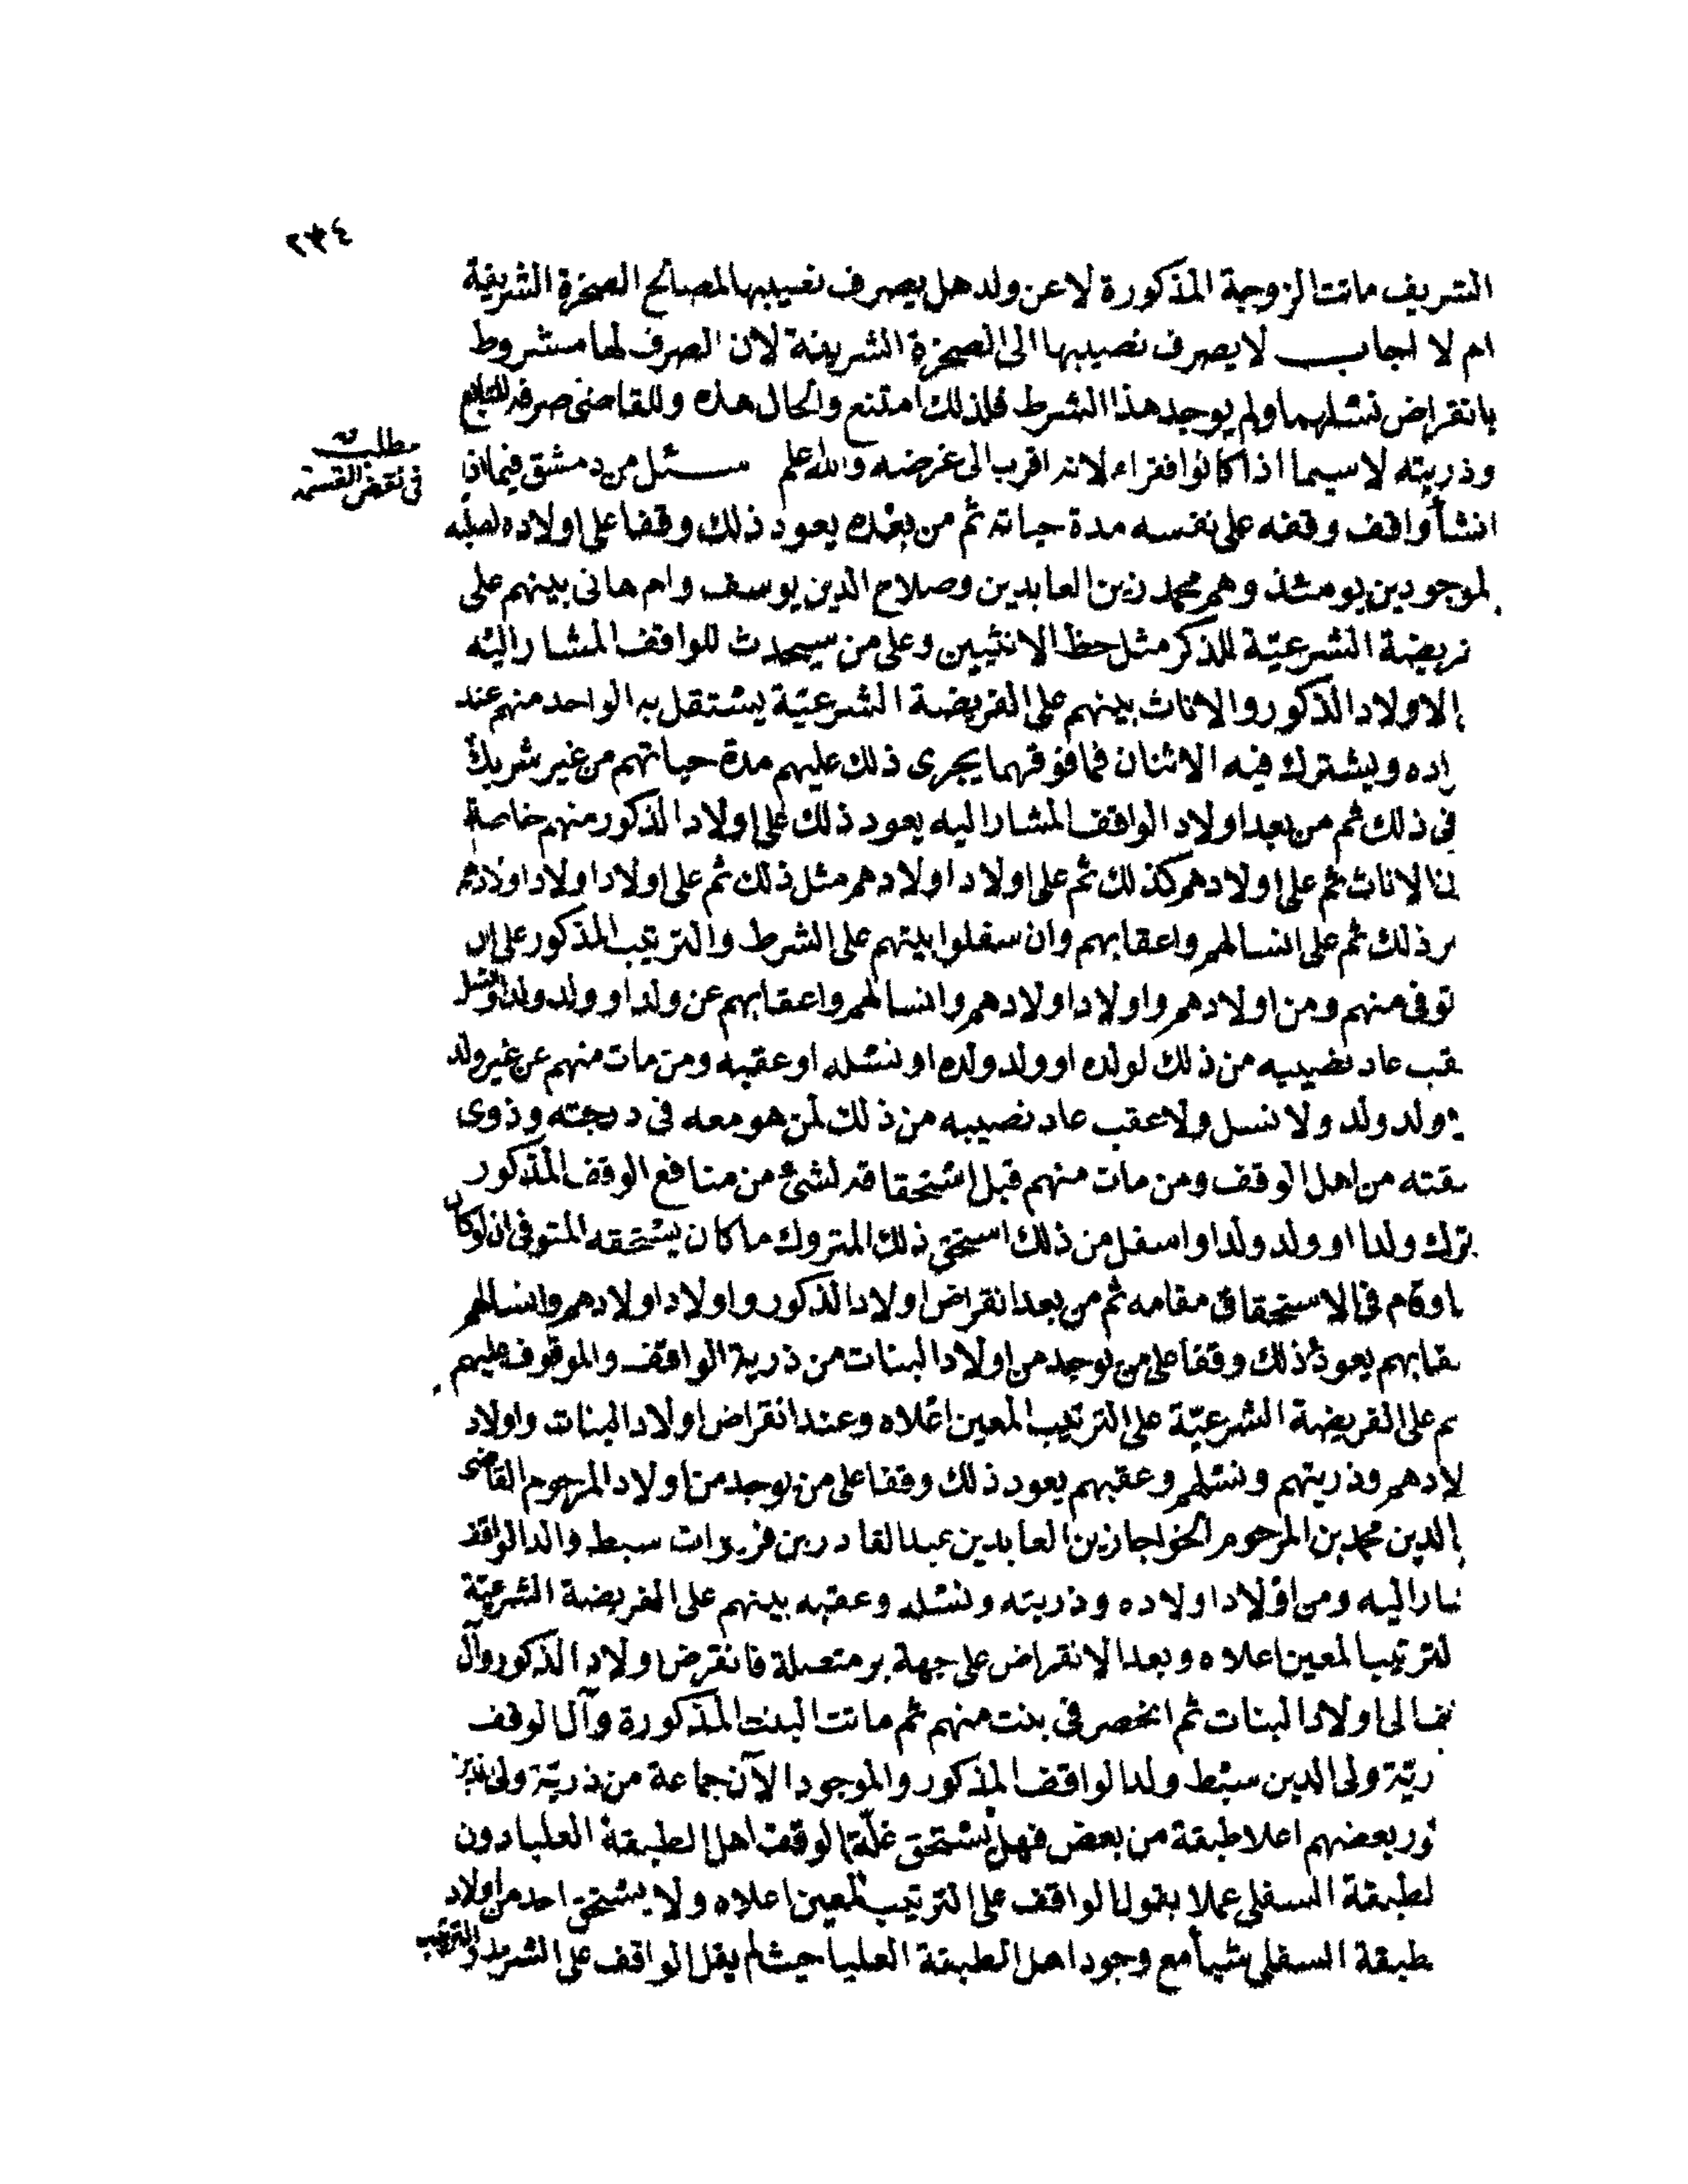 ٢٣٤
الشريف ماتت الزوجة المذكورة لا عن ولد هل يصرف نصيبها لمصالح الصخرة الشريفة
ام لا اجاب لا يصرف نصيبها الى الصخرة الشريفة لان الصرف لها مشروط
بانقراض نسلهما ولم يوجد هذا الشرط فلذلك امتنع والحال هذه وللقاضى صرفه
وذريته لا سيما اذا كانوا فقراء لانه اقرب الى غرضه والله اعلم سئل من دمشق فيما اذا
مطلب
فى نقض القسمة
انشأ واقف وقفه على نفسه مدة حياته ثم من بعده يعود ذلك وقفا على اولاده لصلبه
لموجودين يومئذ وهم محمد زين العابدين وصلاح الدين يوسف وام هانى بينهم على
فريضة الشرعيّة للذكر مثل حظ الانثيين وعلى من سيحدث للواقف المشار اليه
الاولاد الذكور والاناث بينهم على الفريضة الشرعيّة يستقل به الواحد منهم عند
راده ويشترك فيه الاثنان فما فوقهما يجرى ذلك عليهم مدة حياتهم من غير شريك
فى ذلك ثم من بعد اولاد الواقف المشار اليه يعود ذلك على اولاد الذكور منهم خاصة
الاناث ثم على اولادهم كذلك ثم على اولاد اولادهم مثل ذلك ثم على اولاد اولاد اولادهم
ذلك ثم على انسالهم واعقابهم وان سفلوا بينهم على الشرط والترتيب المذكور على ان
توفى منهم ومن اولادهم واولاد اولادهم وانسالهم واعقابهم عن ولد او ولد ولد او نسل
عقب عاد نصيبه من ذلك لولده او ولد ولده او نسله او عقبه ومن مات منهم عن غير ولد
ولد ولد ولا نسل ولا عقب عاد نصيبه من ذلك لمن هو معه فى درجته وذوى
بقته من اهل الوقف ومن مات منهم قبل استحقاقه لشئ من منافع الوقف المذكور
ترك ولدا او ولد ولد او اسفل من ذلك استحق ذلك المتروك ما كان يستحقه المتوفى ان لو كان
يا وقام فى الاستحقاق مقامه ثم من بعد انقراض اولاد الذكور واولاد اولادهم وانسالهم
عقابهم يعود ذلك وقفا على من يوجد من اولاد البنات من ذرية الواقف والموقوف عليهم
هم على الفريضة الشرعيّة على الترتيب المعين اعلاه وعند انقراض اولاد البنات واولاد
لادهم وذريتهم ونسلهم وعقبهم يعود ذلك وقفا على من يوجد من اولاد المرحوم القاضى
الدين محمد بن المرحوم الخواجا زين العابدين عبد القادر بن سبط والد الواقف
شار اليه ومن اولاد اولاده وذريته ونسله وعقبه بينهم على الفريضة الشرعيّة
لترتيب المعين اعلاه وبعد الانقراض على جهة بر متصلة فانقرض اولاد الذكور وآل
الى اولاد البنات ثم انحصر فى بنت منهم ثم ماتت البنت المذكورة وآل الوقف
ريّة ولى الدين سبط ولد الواقف المذكور والموجود الآن جماعة من ذريّة ولى الدين
ور بعضهم اعلا طبقة من بعض فهل يستحق غلّة الوقف اهل الطبقة العليا دون
لطبقة السفلى عملا بقول الواقف على الترتيب المعين اعلاه ولا يستحق احد من اولاد
طبقة السفلى شيأ مع وجود اهل الطبقة العليا حيث لم يقل الواقف على الشرط والترتيب